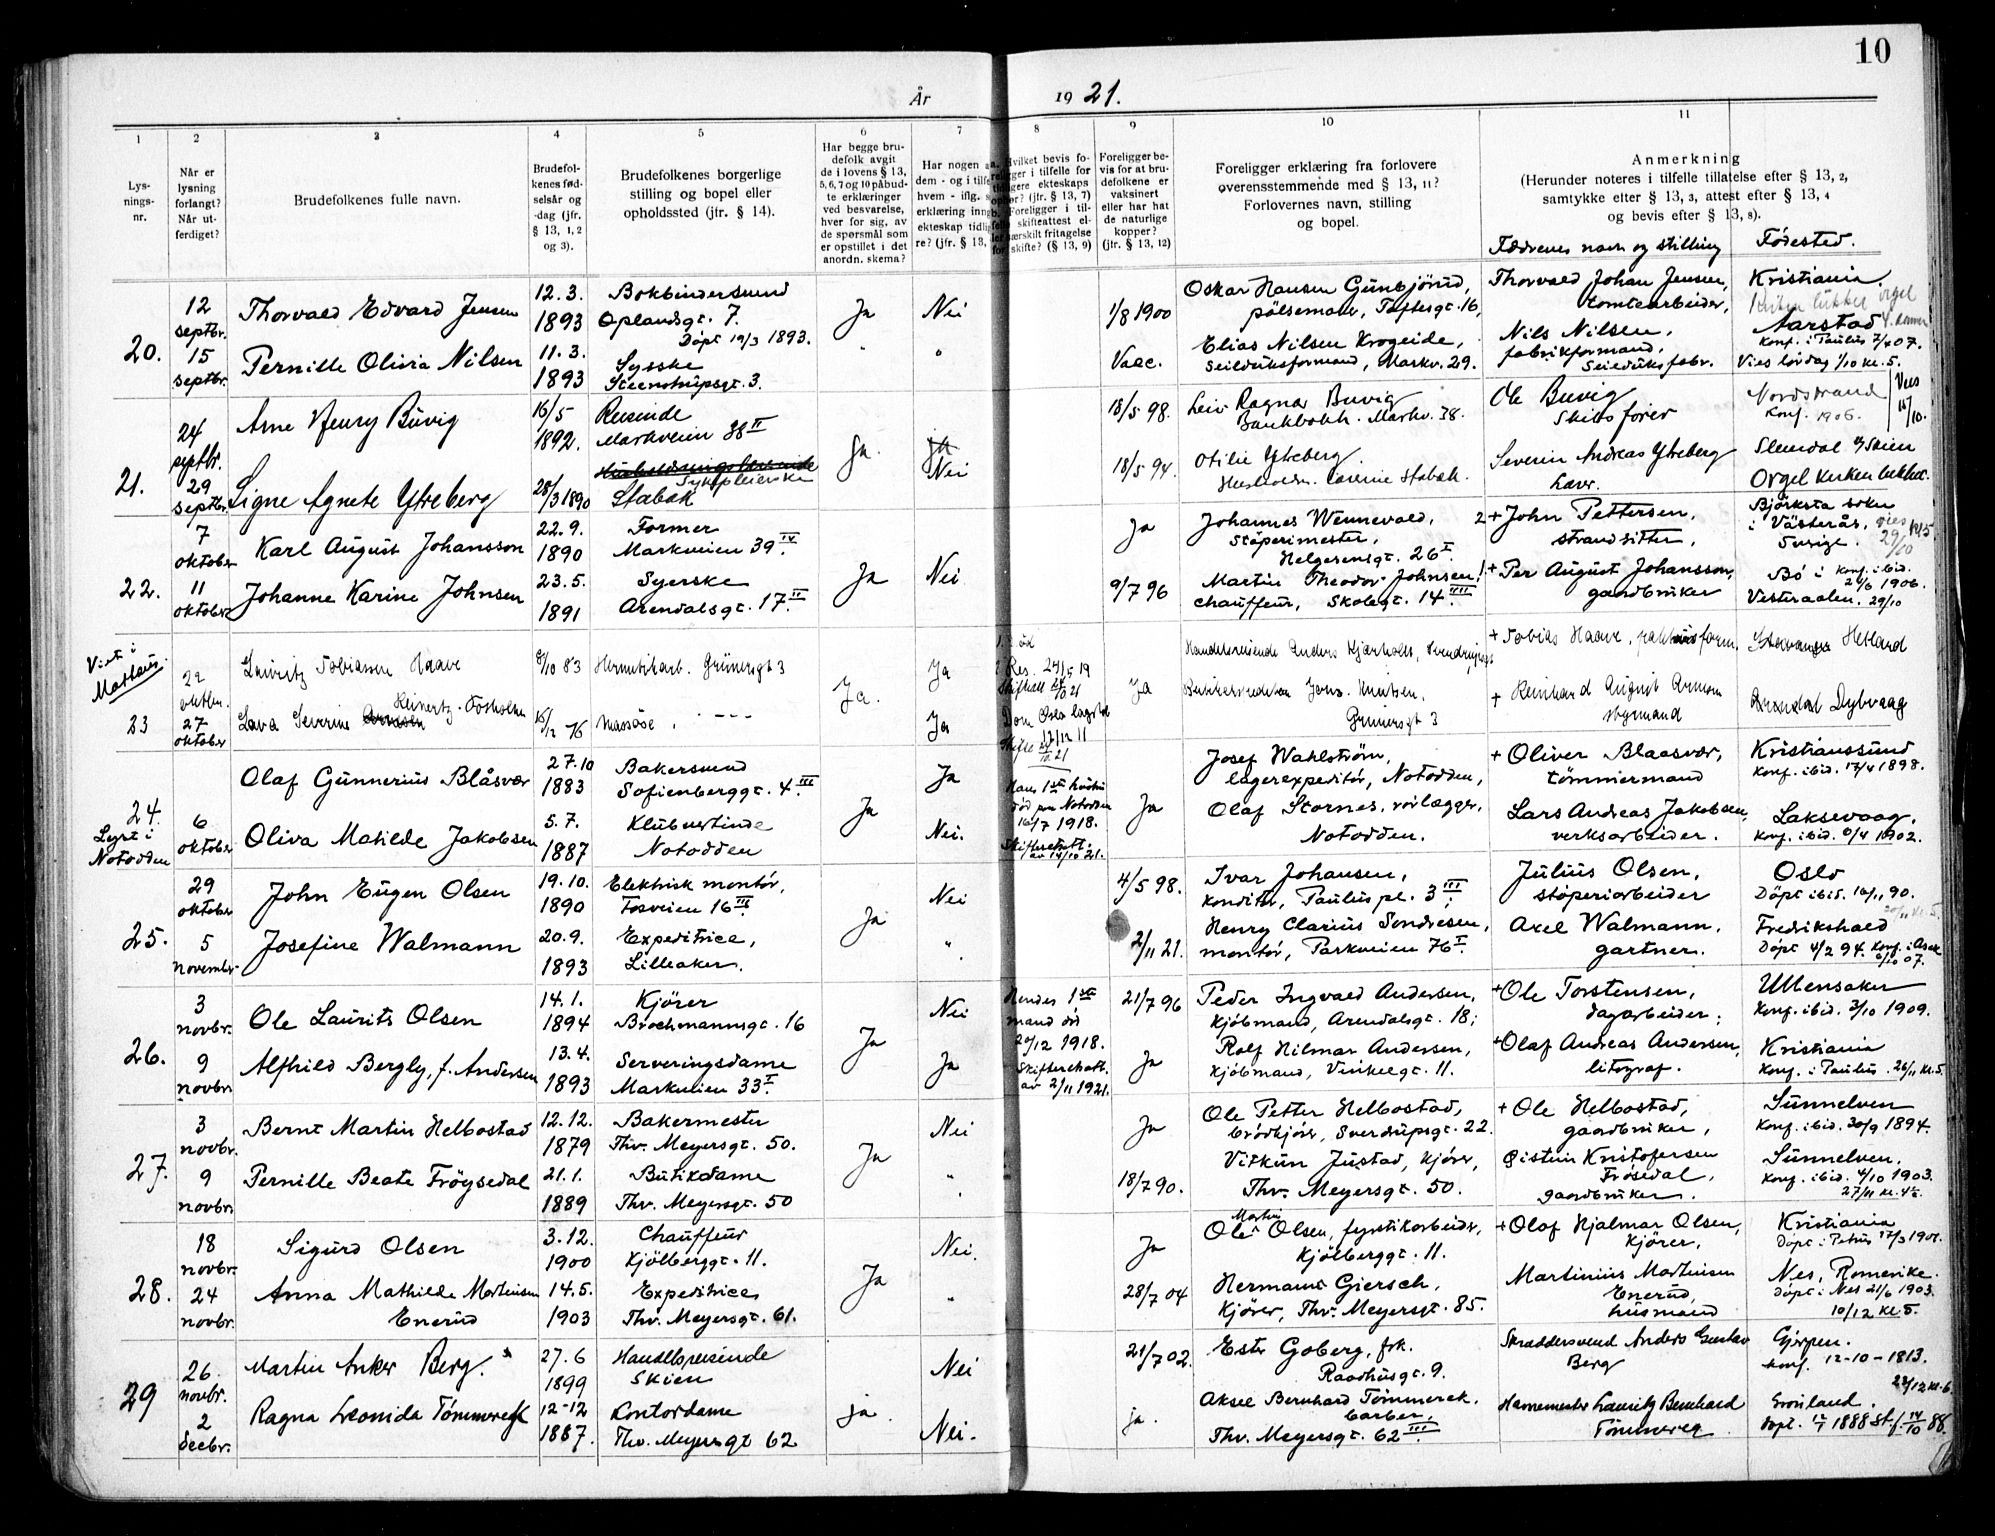 10
År 1921.
1 2 3 4 5 6 7 8 9 10 11
Lys-
nings-
nr.
Når er
lysning
forlangt?
Når ut-
ferdiget?
Brudefolkenes fulle navn.
Brudefol-
kenes fød-
selsår og
-dag (jfr.
§ 13, 1, 2
og 3).
Brudefolkenes borgerlige
stilling og bopel eller
opholdssted (jfr. § 14).
Har begge bru-
defolk avgit
de i lovens § 13,
5, 6, 7 og 10 påbud-
te erklæringer
ved besvarelse,
hver for sig, av
de spørsmål som
er opstillet i det
anordn. skema?
Har nogen a
dem - og i tilfe
hvem - iflg.
erklæring inng
ekteskap tidlig
re? (jfr. § 13,
Hvilket bevis fo-
religger i tilfelle for
tidligere ekteskaps
ophør? (jfr. § 13, 7)
Foreligger i til-
felle skifteattest el-
ler særskilt fritagelse
for skifte? (§ 13, 9)
Foreligger be-
vis for at bru-
defolkene er
vaksinert
eller har hat
de naturlige
kopper?
(jfr. § 13, 12)
Foreligger erklæring fra forlovere
overensstemmende med § 13, 11?
Forlovernes navn, stilling
og bopel.
Anmerkning
(Herunder noteres i tilfelle tillatelse efter § 13, 2,
samtykke efter § 13, 3, attest efter § 13, 4
og bevis efter § 13, 8).
Fædrenes navn og stilling
Fødested.
20.
12
septbr.
15
septbr.
Thorvald Edvard Jensen
Pernille Olivia Nilsen
12.3.
1893
11.3.
1893
Bokbindersvend
Oplandsgt. 7.
Döpt 19/3 1893.
Sysske
Steenstrupsgt. 3.
Ja
"
Nei
"
1/8 1900
Vacc.
Oskar Hansen Gunbjörud,
pölsemaker, Toftesgt. 16,
Elias Nilsen Krogeide,
Seilduksformand, Markv. 29.
Thorvald Johan Jensen,
tomtearbeider,
Nils Nilsen,
fabrikformand,
Seilduksfabr.
Kristiania.
Kirken lukket orgel
Aarstad
Konf. i Paulus 7/4 07.
Vies lördag 1/10 kl. 5.
21.
24
septbr.
29
septbr.
Arne Henry Buvig
Signe Agnete Ytreberg
16/5
1892.
28/3 1890
Reisende
Markveien 38 II
Sykepleierske
Stabæk
Ja.
Nei
18/5 98.
18/5 94.
Leiv Ragnar Buvig
Bankbokh. Markv. 38.
Otilie Ytreberg.
Stabæk.
Ole Buvig
Skibsfører
Severin Andreas Ytreberg
Lærer.
Nordstrand
Konf. 1906.
Vies
15/10.
Slemdal v/ Skien
Orgel kirken lukket.
22.
7
oktober
11
oktober
Karl August Johansson
Johanne Karine Johnsen
22.9.
1890
23.5.
1891
Former
Markveien 39 IV.
Syerske
Arendalsgt. 17 II.
Ja
Nei
Ja
9/7 96
Johannes Wennevald,
Støperimester,
Helgesensgt. 26 I
Martin Theodor Johnsen,
chauffeur, Skolegt. 14 III.
2 + John Pettersen,
strandsitter,
1 + Per August Johansson,
gaardbruker
Björksta sokn
i Västerås,
Sverige.
vies
29/10
Bö i
Vesteraalen.
konf. ibid.
1906.
29/10
Viet i
23
22
oktbr.
27
oktober
Lauritz Tobiassen Haave
Lava Severine Reinertz-Tosholm
8/10 83
15/12 76
Hermetikarb. Grünersgt 3
Massöse, " ---
Ja.
Ja
Ja
Res. 24/5 19
Dom Oslo lagret
12/12 11
Ja
Handelsreisende Anders Kjærholt,
Grünersgt 3
+ Tobias Haave,
+ Reinhard August Arnesen
styrmand
Stavanger Hetland
Arendal Dybvaag
24.
Lyst i
Notodden
6
oktober
Olaf Gunnerius Blåsvær
Oliva Matilde Jakobsen
27.10
1883
5.7.
1887
Bakersvend
Sofienberggt. 4 III
Klubvertinde
Notodden
Ja
Ja
Nei.
Hans 1ste hustru
død paa Notodden
16/7 1918.
Skifteatt.
av 14/10 21.
Ja
Josef Wahlstrøm,
lagerexpeditör, Notodden,
Olaf Stornes, rörlægger,
Notodden.
+ Oliver Blaasvær,
tömmermand
Lars Andreas Jakobsen,
verksarbeider.
Kristianssund
Konf. ibid. 17/4 1898.
Laksevaag.
Konf. ibid. 6/4 1902.
25.
29
oktober
5
november
John Eugen Olsen
Josefine Walmann
19.10.
1890
20.9.
1893
Elektrisk montör,
Fosveien 16 III.
Expeditrice,
Lilleaker.
Ja
Nei
"
4/5 98.
2/11 21.
Ivar Johansen,
konditor, Paulus pl. 3 III,
Henry Clarius Sondresen,
montör, Parkveien 76 I.
Julius Olsen,
støperiarbeider
Axel Walmann,
gartner.
Oslo
Döpt ibid. 16/11 90.
20/11 kl. 5.
Fredrikshald
Döpt 4/2 94. Konf. i Asak
6/10 07.
26.
3
novbr.
9
novbr.
Ole Laurits Olsen
Alfhild Bergly, f. Andersen
14.1.
1894
13.4.
1893
Kjører
Brochmannsgt. 16
Serveringsdame
Markveien 33 I.
Ja
Nei
Ja
Hendes 1ste
mand död
20/12 1918.
Skifteatt.
av 2/11 1921.
21/7 96
Ja
Peder Ingvald Andersen,
kjöbmand, Arendalsgt. 18;
Rolf Hilmar Andersen,
kjöbmand, Vinkelgt. 11.
+ Ole Torstensen,
dagarbeider;
+ Olaf Andreas Andersen,
litograf.
Ullensaker
Konf. ibid. 3/10 1909.
Kristiania
Konf. i Paulus. 26/11 kl. 5.
27.
3
novbr.
9
novbr.
Bernt Martin Helbostad
Pernille Beate Fröysedal
12.12.
1879
21.1.
1889
Bakermester
Thv. Meyersgt. 50.
Butikdame
Thv. Meyersgt. 50
Ja
Nei
"
Ja
18/7 90.
Ole Petter Helbostad,
brödkjører, Sverdrupsgt. 22.
Vitkun Justad, kjører,
Thv. Meyersgt. 50.
+ Ole Helbostad,
gaardbruker,
Øistein Kristofersen
Fröisedal,
gaardbruker.
Sunnelven
Konf. ibid. 30/9 1894.
Sunnelven.
Konf. ibid. 4/10 1903.
27/11 kl. 4½
28.
18
novbr.
24
novbr.
Sigurd Olsen
Anna Mathilde Martinsen
Enerud
3.12.
1900
14.5.
1903
Chauffeur
Kjölberggt. 11.
Expeditrice
Thv. Meyersgt. 61.
Ja
Nei.
"
Ja
28/7 04
Ole Martin Olsen, fyrstikarbeider,
Kjölberggt. 11.
Herman Giersch,
Kjører, Thv. Meyersgt. 85.
+ Olaf Hjalmar Olsen,
kjører,
Martinius Martinsen
Enerud,
husmand
Kristiania
Döpt i Petrus 17/3 1901.
Nes, Romerike.
Döpt i Nes 21/6 1903.
10/12 kl. 5.
29
26
novbr.
2
decbr.
Martin Anker Berg.
Ragna Leonida Tömmereck
27.6
1899
12-12
1887.
Handelsreisende
Skien
Kontordame
Thv. Meyersgt 62
ja.
Nei
Nei.
21/7 02.
ja.
Ester Goberg, frk.
Raadhusgt. 9.
Aksel Bernhard Tömmerek.
barber,
Thv. Meyersgt. 62 III.
Skræddersvend Anders Gustav
Berg
Lauritz Bernhard
Tömmereg
Gjerpen.
Konf. 12-10-1813.
22/12 kl. 6
Grönland.
döpt. 1888